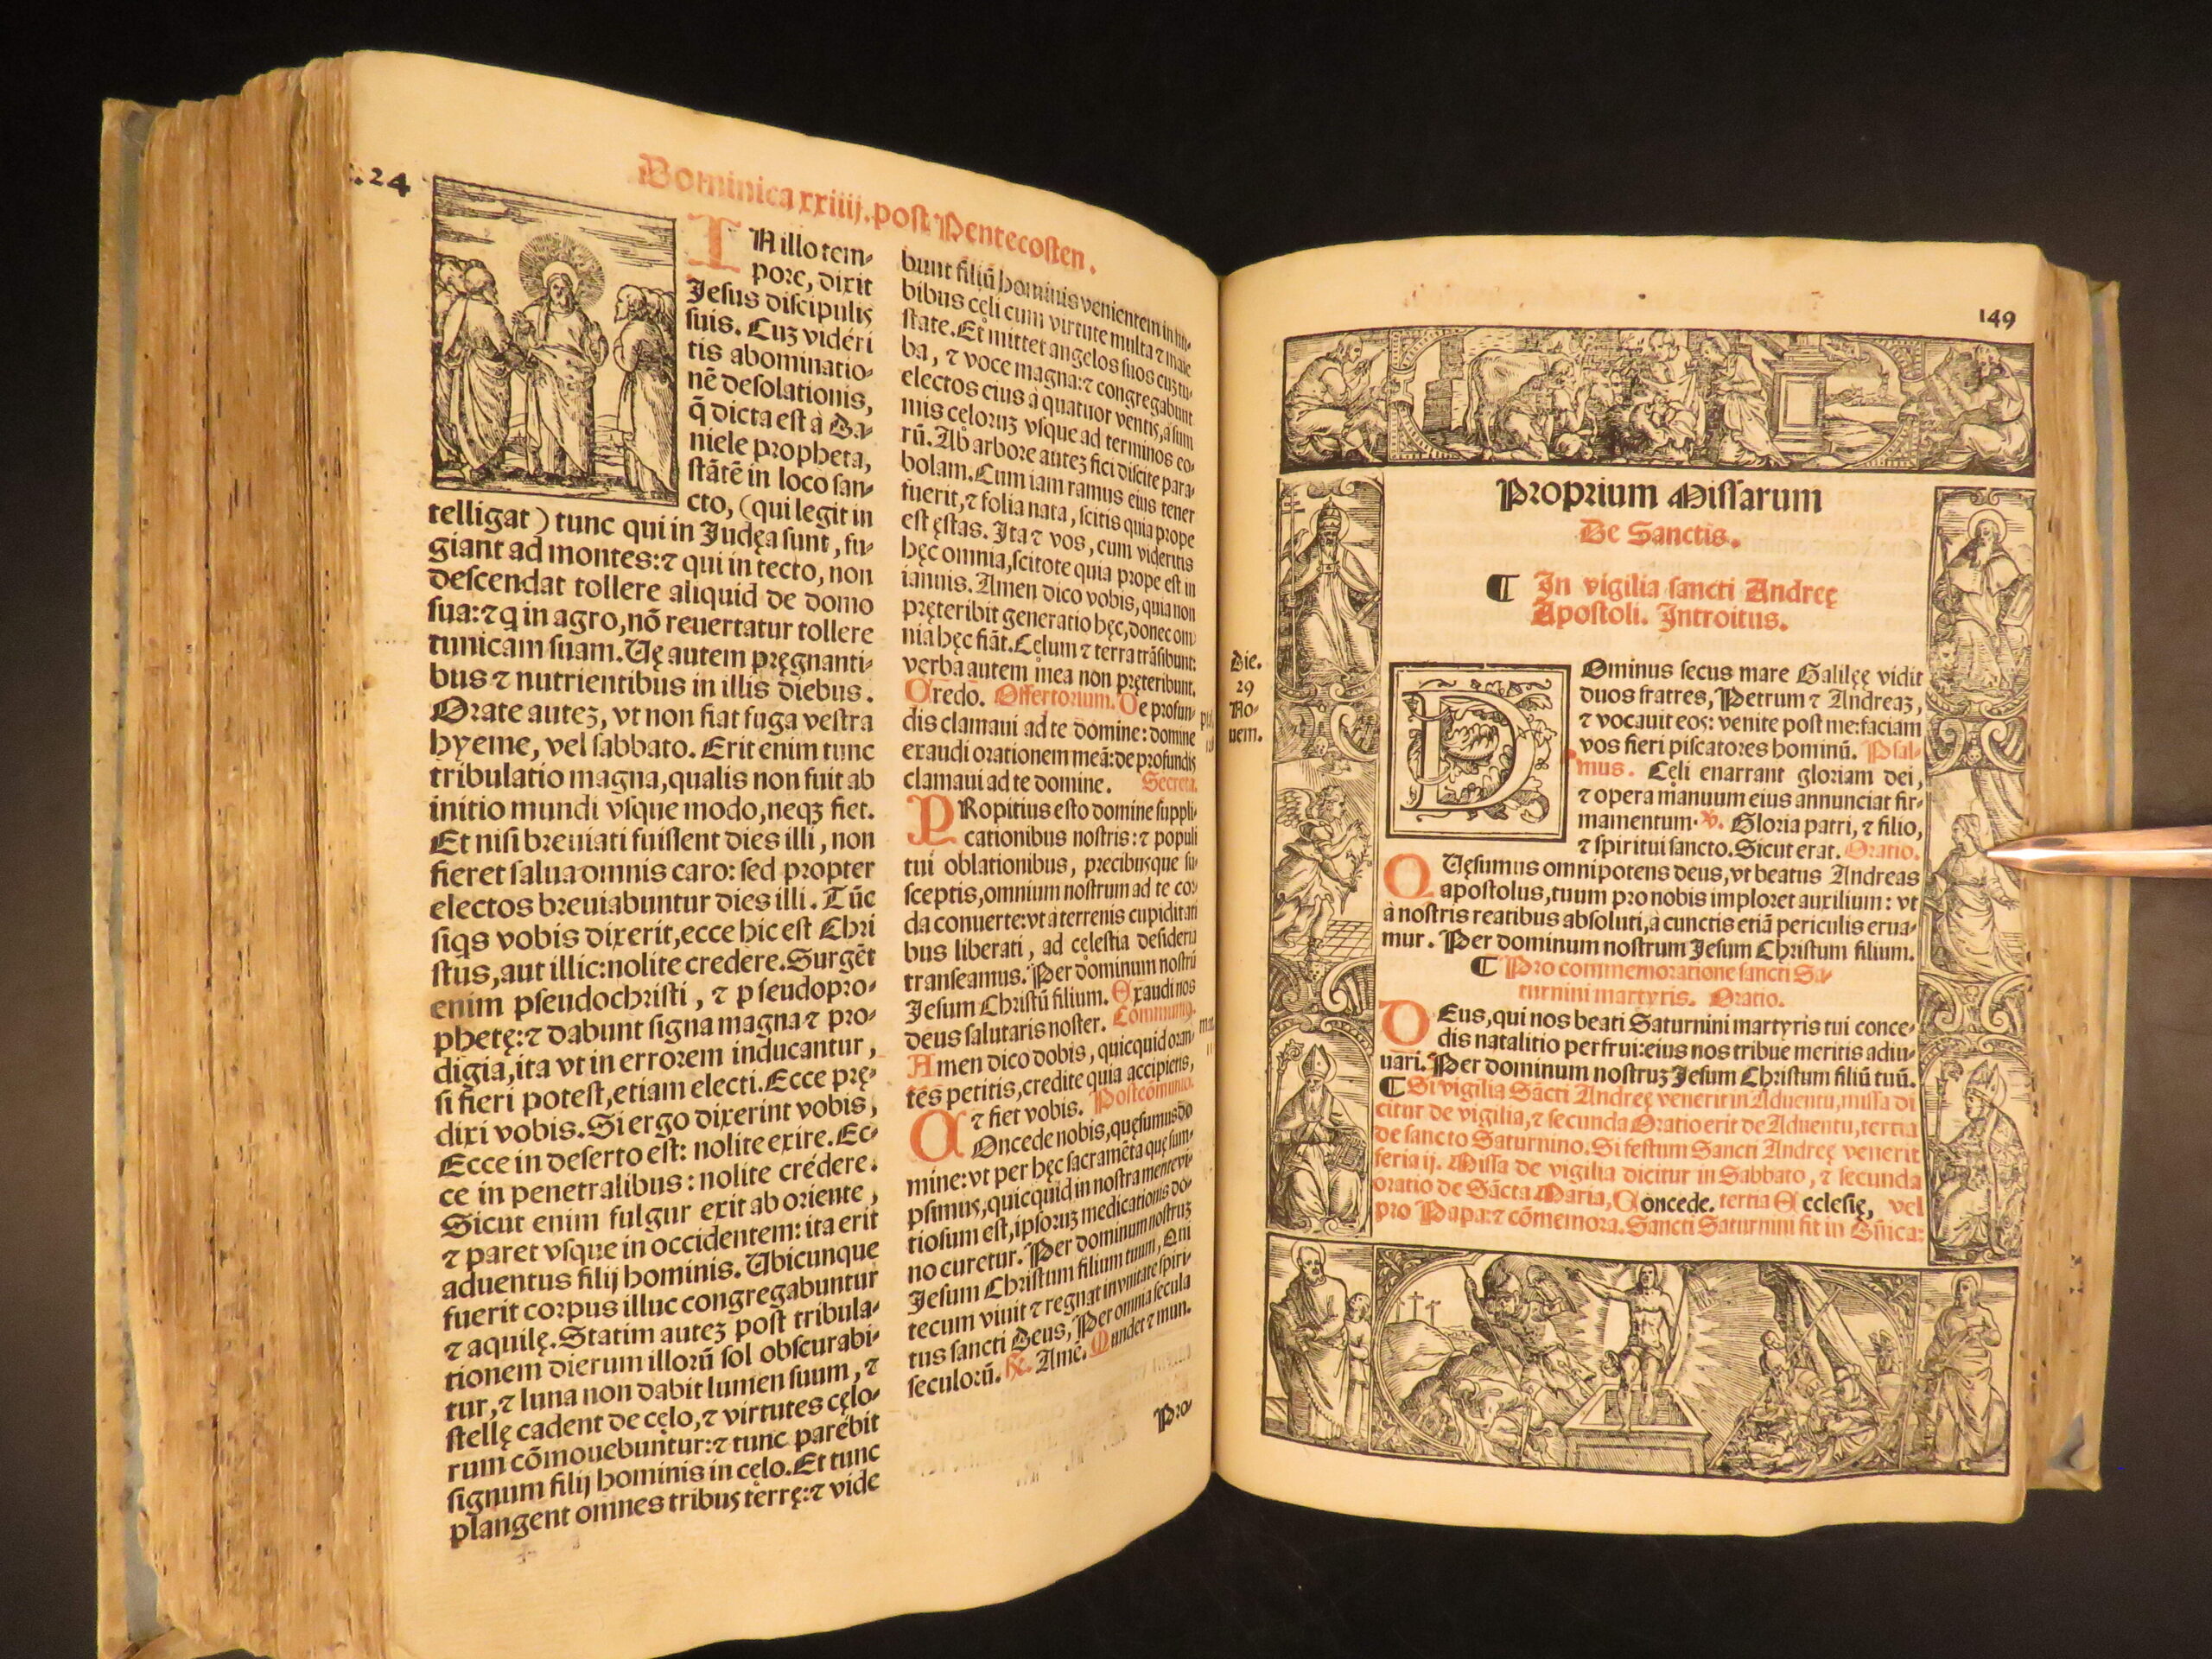 .24
Dominica xxiiij. post Pentecosten.
IN illo tem-
pore, dixit
Jesus discipulis
suis. Cuz vidéri
tis abominatio-
nē desolationis,
q̃ dicta est à Da-
niele propheta,
stātē in loco san-
cto, (qui legit in
telligat) tunc qui in Judęa sunt, fu-
giant ad montes: ⁊ qui in tecto, non
descendat tollere aliquid de domo
sua: ⁊ q in agro, nō reuertatur tollere
tunicam suam. Vę autem pręgnanti-
bus ⁊ nutrientibus in illis diebus.
Orate autez, vt non fiat fuga vestra
hyeme, vel sabbato. Erit enim tunc
tribulatio magna, qualis non fuit ab
initio mundi vsque modo, neqz fiet.
Et nisi breuiati fuissent dies illi, non
fieret salua omnis caro: sed propter
electos breuiabuntur dies illi. Tūc
siqs vobis dixerit, ecce hic est Chri
stus, aut illic: nolite credere. Surgēt
enim pseudochristi, ⁊ pseudopro-
phetę: ⁊ dabunt signa magna ⁊ pro-
digia, ita vt in errorem inducantur,
si fieri potest, etiam electi. Ecce prę-
dixi vobis. Si ergo dixerint vobis,
Ecce in deserto est: nolite exire. Ec-
ce in penetralibus: nolite crédere.
Sicut enim fulgur exit ab oriente,
⁊ paret vsque in occidentem: ita erit
aduentus filij hominis. Vbicunque
fuerit corpus illuc congregabuntur
⁊ aquilę. Statim autez post tribula-
tionem dierum illorū sol obscurabi-
tur, ⁊ luna non dabit lumen suum, ⁊
stellę cadent de cęlo, ⁊ virtutes cęlo-
rum cōmouebuntur: ⁊ tunc parébit
signum filij hominis in cęlo. Et tunc
plangent omnes tribus terrę: ⁊ vide
bunt filiū hominis venientem in nu-
bibus cęli cum virtute multa ⁊ maie
state. Et mittet angelos suos cuz tu-
ba, ⁊ voce magna: ⁊ congregabunt
electos eius à quatuor ventis, à sum
mis cęloruz vsque ad terminos eo-
rū. Ab arbore autez fici discite para-
bolam. Cum iam ramus eius tener
fuerit, ⁊ folia nata, scitis quia prope
est ęstas. Ita ⁊ vos, cum videritis
hęc omnia, scitote quia prope est in
ianuis. Amen dico vobis, quia non
pręteribit generatio hęc, donec om
nia hęc fiāt. Cęlum ⁊ terra trāsibunt:
verba autem mea non pręteribunt.
Credo. Offertorium. De profun-
dis clamaui ad te domine: domine
exaudi orationem meā: de profundis
clamaui ad te domine. Secreta.
PRopitius esto domine suppli-
cationibus nostris: ⁊ populi
tui oblationibus, precibusque su-
sceptis, omnium nostrum ad te cor-
da conuerte: vt à terrenis cupiditati
bus liberati, ad cęlestia desideria
transeamus. Per dominum nostrū
Jesum Christū filium. Exaudi nos
deus salutaris noster. Cōmunio.
Amen dico vobis, quicquid oran-
tés petitis, credite quia accipietis,
⁊ fiet vobis. Postcōmunio.
COncede nobis, quęsumus do
mine: vt per hęc sacramēta quę sum-
psimus, quicquid in nostra mente vi-
tiosum est, ipsoruz medicationis do-
no curetur. Per dominum nostruz
Jesum Christum filium tuum, Qui
tecum viuit ⁊ regnat in vnitate spiri-
tus sancti Deus, Per omnia secula
seculorū. ℟. Amē. Mundet ⁊ mun.
Pro-
149
Proprium Missarum
De Sanctis.
¶ In vigilia sancti Andreę
Apostoli. Introitus.
Die.
29
No-
uem.
DOminus secus mare Galilęę vidit
duos fratres, Petrum ⁊ Andreaz,
⁊ vocauit eos: venite post me: faciam
vos fieri piscatores hominū. Psal-
mus. Cęli enarrant gloriam dei,
⁊ opera manuum eius annunciat fir-
mamentum. ℣. Gloria patri, ⁊ filio,
⁊ spiritui sancto. Sicut erat. Oratio.
QVęsumus omnipotens deus, vt beatus Andreas
apostolus, tuum pro nobis imploret auxilium: vt
à nostris reatibus absoluti, à cunctis etiā periculis erua-
mur. Per dominum nostrum Jesum Christum filium.
¶ Pro commemoratione sancti Sa-
turnini martyris. Oratio.
DEus, qui nos beati Saturnini martyris tui conce-
dis natalitio perfrui: eius nos tribue meritis adiu-
uari. Per dominum nostruz Jesum Christum filiū tuū.
¶ Si vigilia Sācti Andreę venerit in Aduentu, missa di
citur de vigilia, ⁊ secunda Oratio erit de Aduentu, tertia
de sancto Saturnino. Si festum Sancti Andreę venerit
feria ij. Missa de vigilia dicitur in Sabbato, ⁊ secunda
oratio de Sācta Maria, Concede. tertia Ecclesię, vel
pro Papa: ⁊ cōmemora. Sancti Saturnini fit in Dñica: